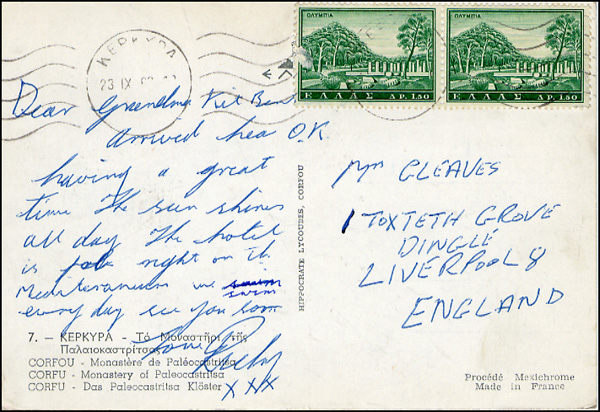 ΚΕΡΚΥΡΑ
23 IX
ΟΛΥΜΠΙΑ
ΕΛΛΑΣ ΔΡ. 1.50
ΟΛΥΜΠΙΑ
ΕΛΛΑΣ ΔΡ. 1.50
Dear Grandma Kit
arrived hea O.K
having a great
time The sun shines
all day The hotel
is right on the
Mediteraneum we swim
every day see you soon
love
xxx
HIPPOCRATE LYCOUDES, CORFOU
Mrs GLEAVES
1 TOXTETH GROVE
DINGLE
LIVERPOOL 8
ENGLAND
7. — ΚΕΡΚΥΡΑ - Τὸ Μοναστῆρι τῆς
Παλαιοκαστρίτσας
CORFOU - Monastère de Paléocastritsa
CORFU - Monastery of Paleocastritsa
CORFU - Das Paleocastritsa Klöster
Procédé Mexichrome
Made in France